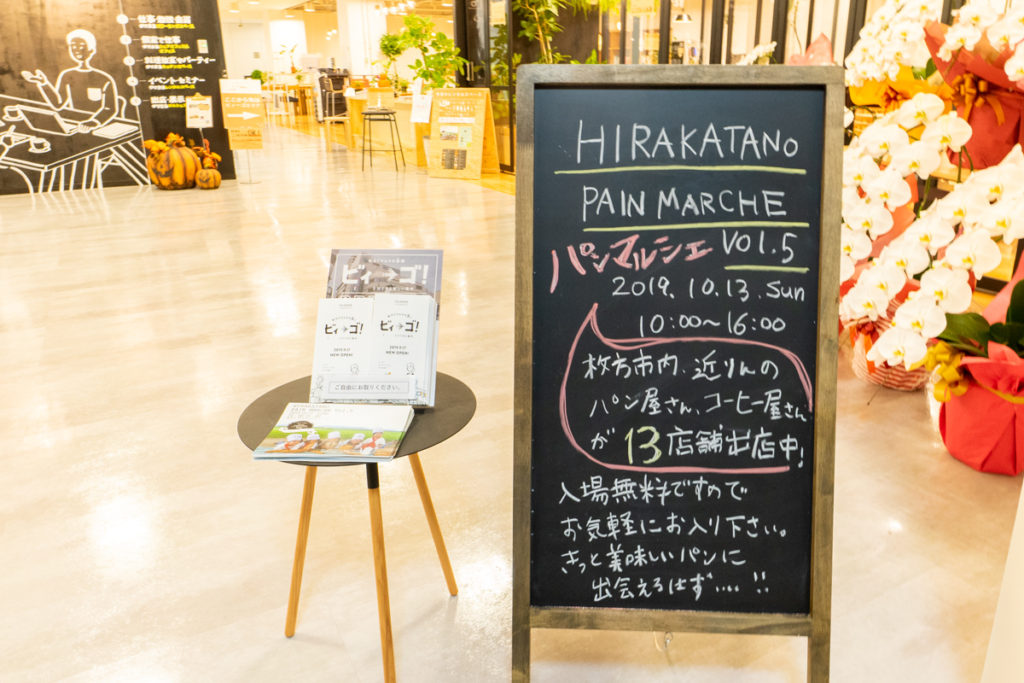 HIRAKATANO
PAIN MARCHE
パンマルシェ Vol.5
2019.10.13.Sun
10:00~16:00
枚方市内、近りんの
パン屋さん、コーヒー屋さん
が13店舗出店中!
入場無料ですので
お気軽にお入り下さい。
きっと美味しいパンに
出会えるはず…..!!
ビィーゴ!
ビィーゴ!
ビィーゴ!
NEW OPEN!
NEW OPEN!
ご自由にお取りください。
イベント・セミナー